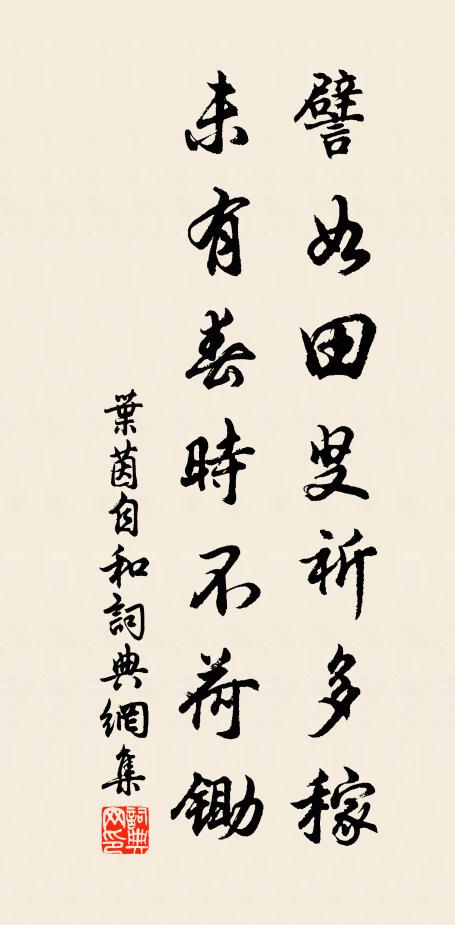 譬如田叟祈多稼
未有春時不荷鋤
葉茵自和詞典網集
詞典網印